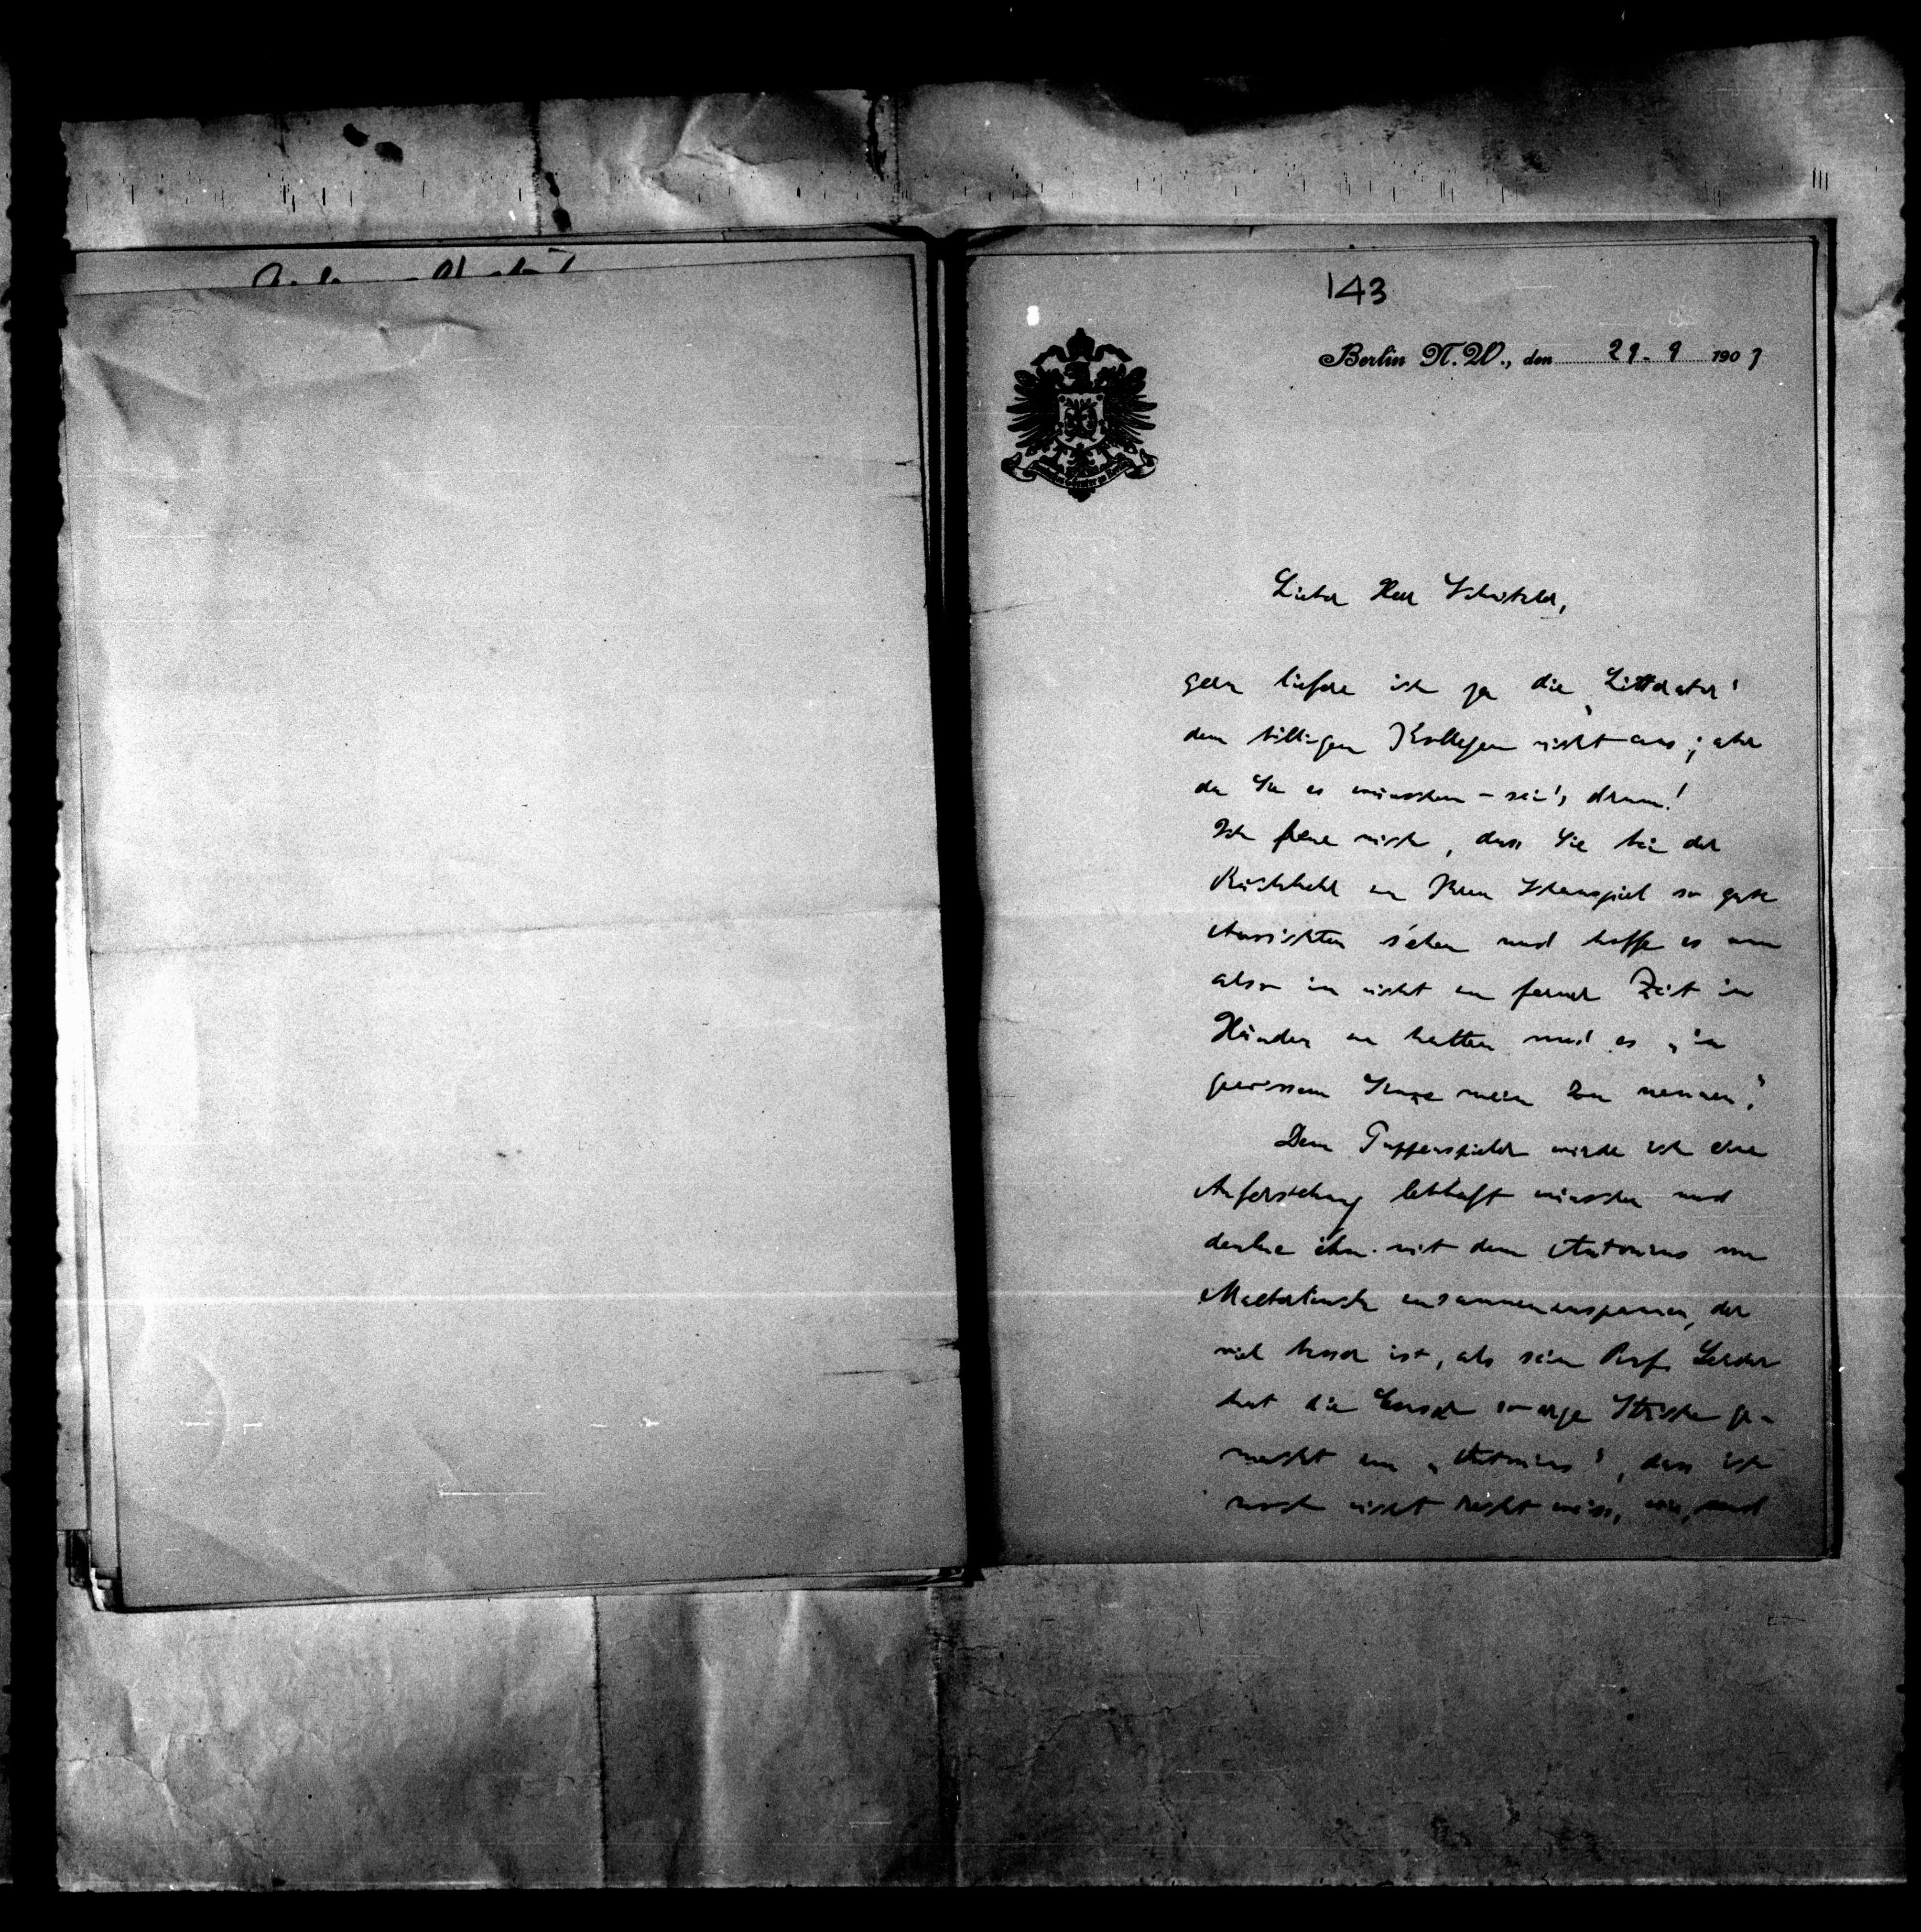 143
Berlin N. W., den 29. 9 1903
Lieber Herr Schnitzler,
gern liefere ich ja die „Litteratur“
dem billigen Kollegen nicht aus; aber
da Sie es wünschen – sei's drum!
Ich freue mich, dass Sie bei der
Rückkehr zu Ihrem Schauspiel so gute
Aussichten sehen und hoffe es nun
also in nicht zu ferner Zeit in
Händen zu halten und es „in
gewissem Sinne mein zu nennen“.
Dem Puppenspieler würde ich eine
Auferstehung lebhaft wünschen und
denke ihn mit dem Antonius von
Maeterlinck zusammenzuspannen, der
viel besser ist, als sein Ruf. Leider
hat die Censur so arge Striche ge-
macht im „Antonius“, dass ich
noch nicht recht weiss, wie, und